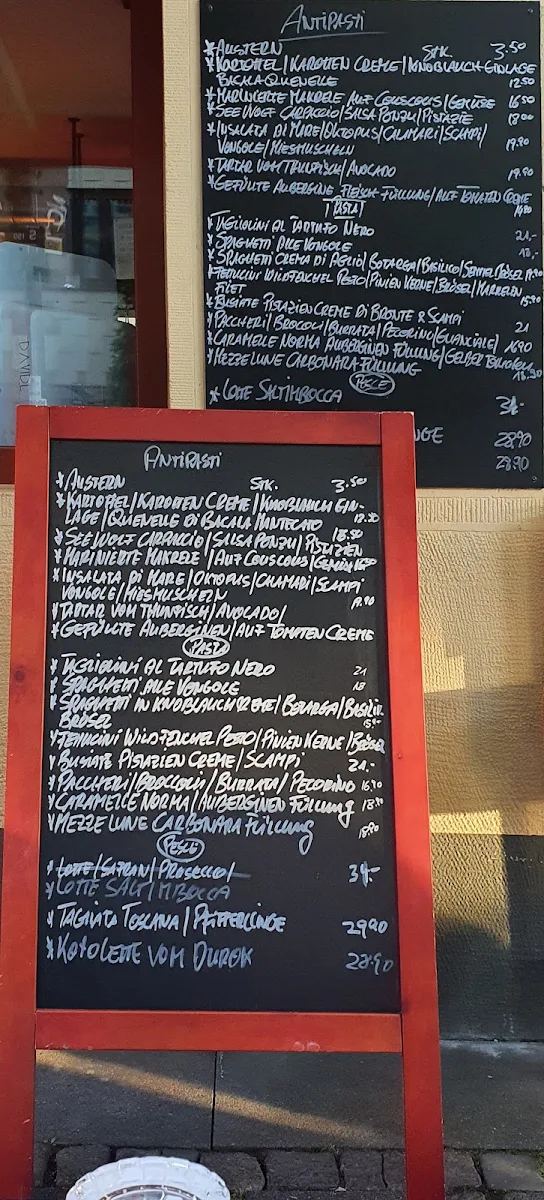 ANTIPASTI
*AUSTERN STK. 3.50
*KARTOFFEL/KAROTTEN CREME/KNOBLAUCH EINLAGE
BACALA QUENELLE 12.50
*MARINIERTE MAKRELE AUF COUSCOUS/GEMÜSE 16.50
*SEE WOLF CARPACCIO/SALSA PONZU/PISTAZIE 18.00
*INSALATA DI MARE/OKTOPUS/CALAMARI/SCAMPI/
VONGOLE/MIESMUSCHELN 19.90
*TARTAR VOM THUNFISCH/AVOCADO 19.90
*GEFÜLLTE AUBERGINE FLEISCH FÜLLUNG/AUF TOMATEN CREME
PASTA
*TAGLIOLINI AL TARTUFO NERO 21,-
*SPAGHETTI ALLE VONGOLE 18,-
*SPAGHETTI CREMA DI AGLIO/BOTARGA/BASILICO/
*FETTUCINI WILDFENCHEL PESTO/PINIEN KERNE/BRÖSEL/MAKRELEN
FILET 15.90
*BUSIATE PISTAZIEN CREME DI BRONTE & SCAMPI 21
*PACCHERI/BROCCOLI/BURRATA/PECORINO/GUANCIALE/ 16.90
*CARAMELLE NORMA/AUBERGINEN FÜLLUNG/GELBER
*MEZZE LUNE CARBONARA FÜLLUNG 18.90
PESCE
*LOTTE SALTIMBOCCA 34-
NGE 28,90
28,90
DAVIDE
ANTIPASTI
*AUSTERN STK. 3.50
*KARTOFFEL/KAROTTEN CREME/KNOBLAUCH EIN-
LAGE/QUENELLE DI BACALA MANTECATO 12.50
*SEE WOLF CARPACCIO/SALSA PONZU/PISTAZIEN 18.50
*MARINIERTE MAKRELE/AUF COUSCOUS/GEMÜSE 16.50
*INSALATA DI MARE/OKTOPUS/CALAMARI/SCAMPI
VONGOLE/MIESMUSCHELN 19.90
*TARTAR VOM THUNFISCH/AVOCADO/
*GEFÜLLTE AUBERGINEN/AUF TOMATEN CREME
PASTA
*TAGLIOLINI AL TARTUFO NERO 21
*SPAGHETTI ALLE VONGOLE 18
*SPAGHETTI IN KNOBLAUCH CREME/BOTARGA/BASILIK
BRÖSEL
*FETTUCINI WILDFENCHEL PESTO/PINIEN KERNE/BRÖSEL
*BUSIATE PISTAZIEN CREME/SCAMPI 21.-
*PACCHERI/BROCCOLI/BURRATA/PECORINO 16,90
*CARAMELLE NORMA/AUBERGINEN FÜLLUNG 18,90
*MEZZE LUNE CARBONARA FÜLLUNG 18,90
PESCE
*LOTTE/SAFRAN/PROSECCO/ 34-
*LOTTE SALTIMBOCCA
*TAGLIATA TOSCANA/PFIFFERLINGE 29,90
*KOTOLETTE VOM DUROK 28,90